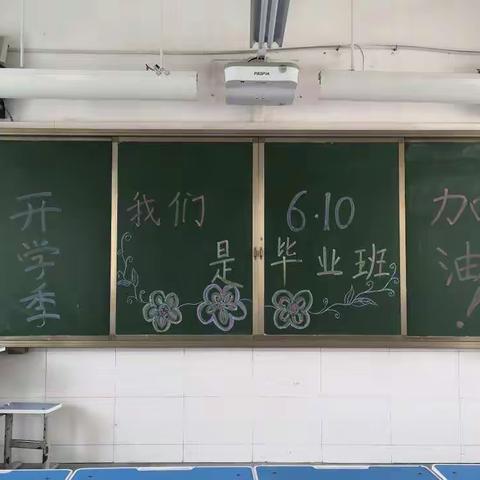 开学季
我们
是
6·10
毕业班
加油！